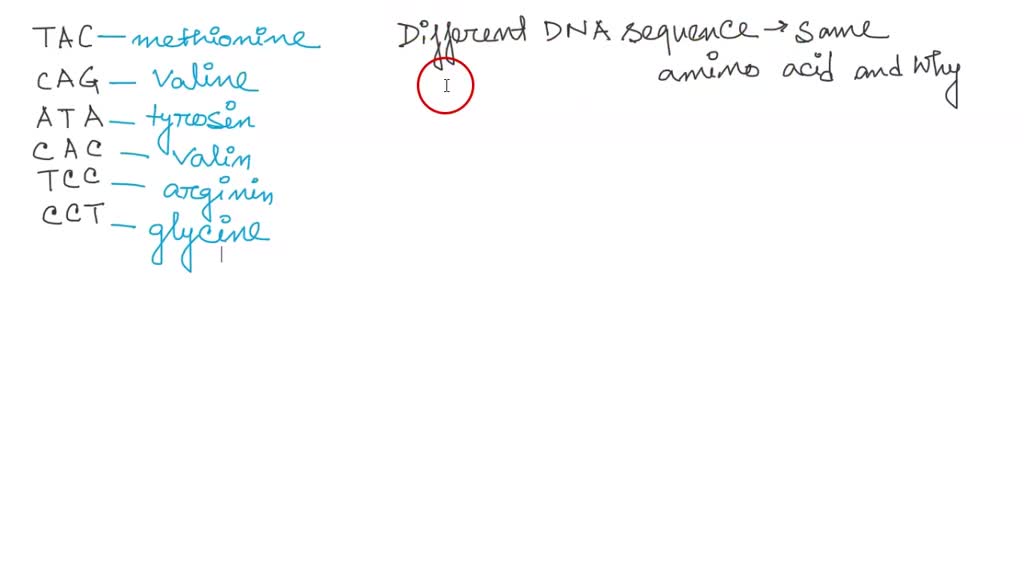 TAC - methionine
CAG - Valine
ATA - tyrosin
CAC - Valin
TCC - arginin
CCT - glycine
Different DNA sequence → same
amino acid and why